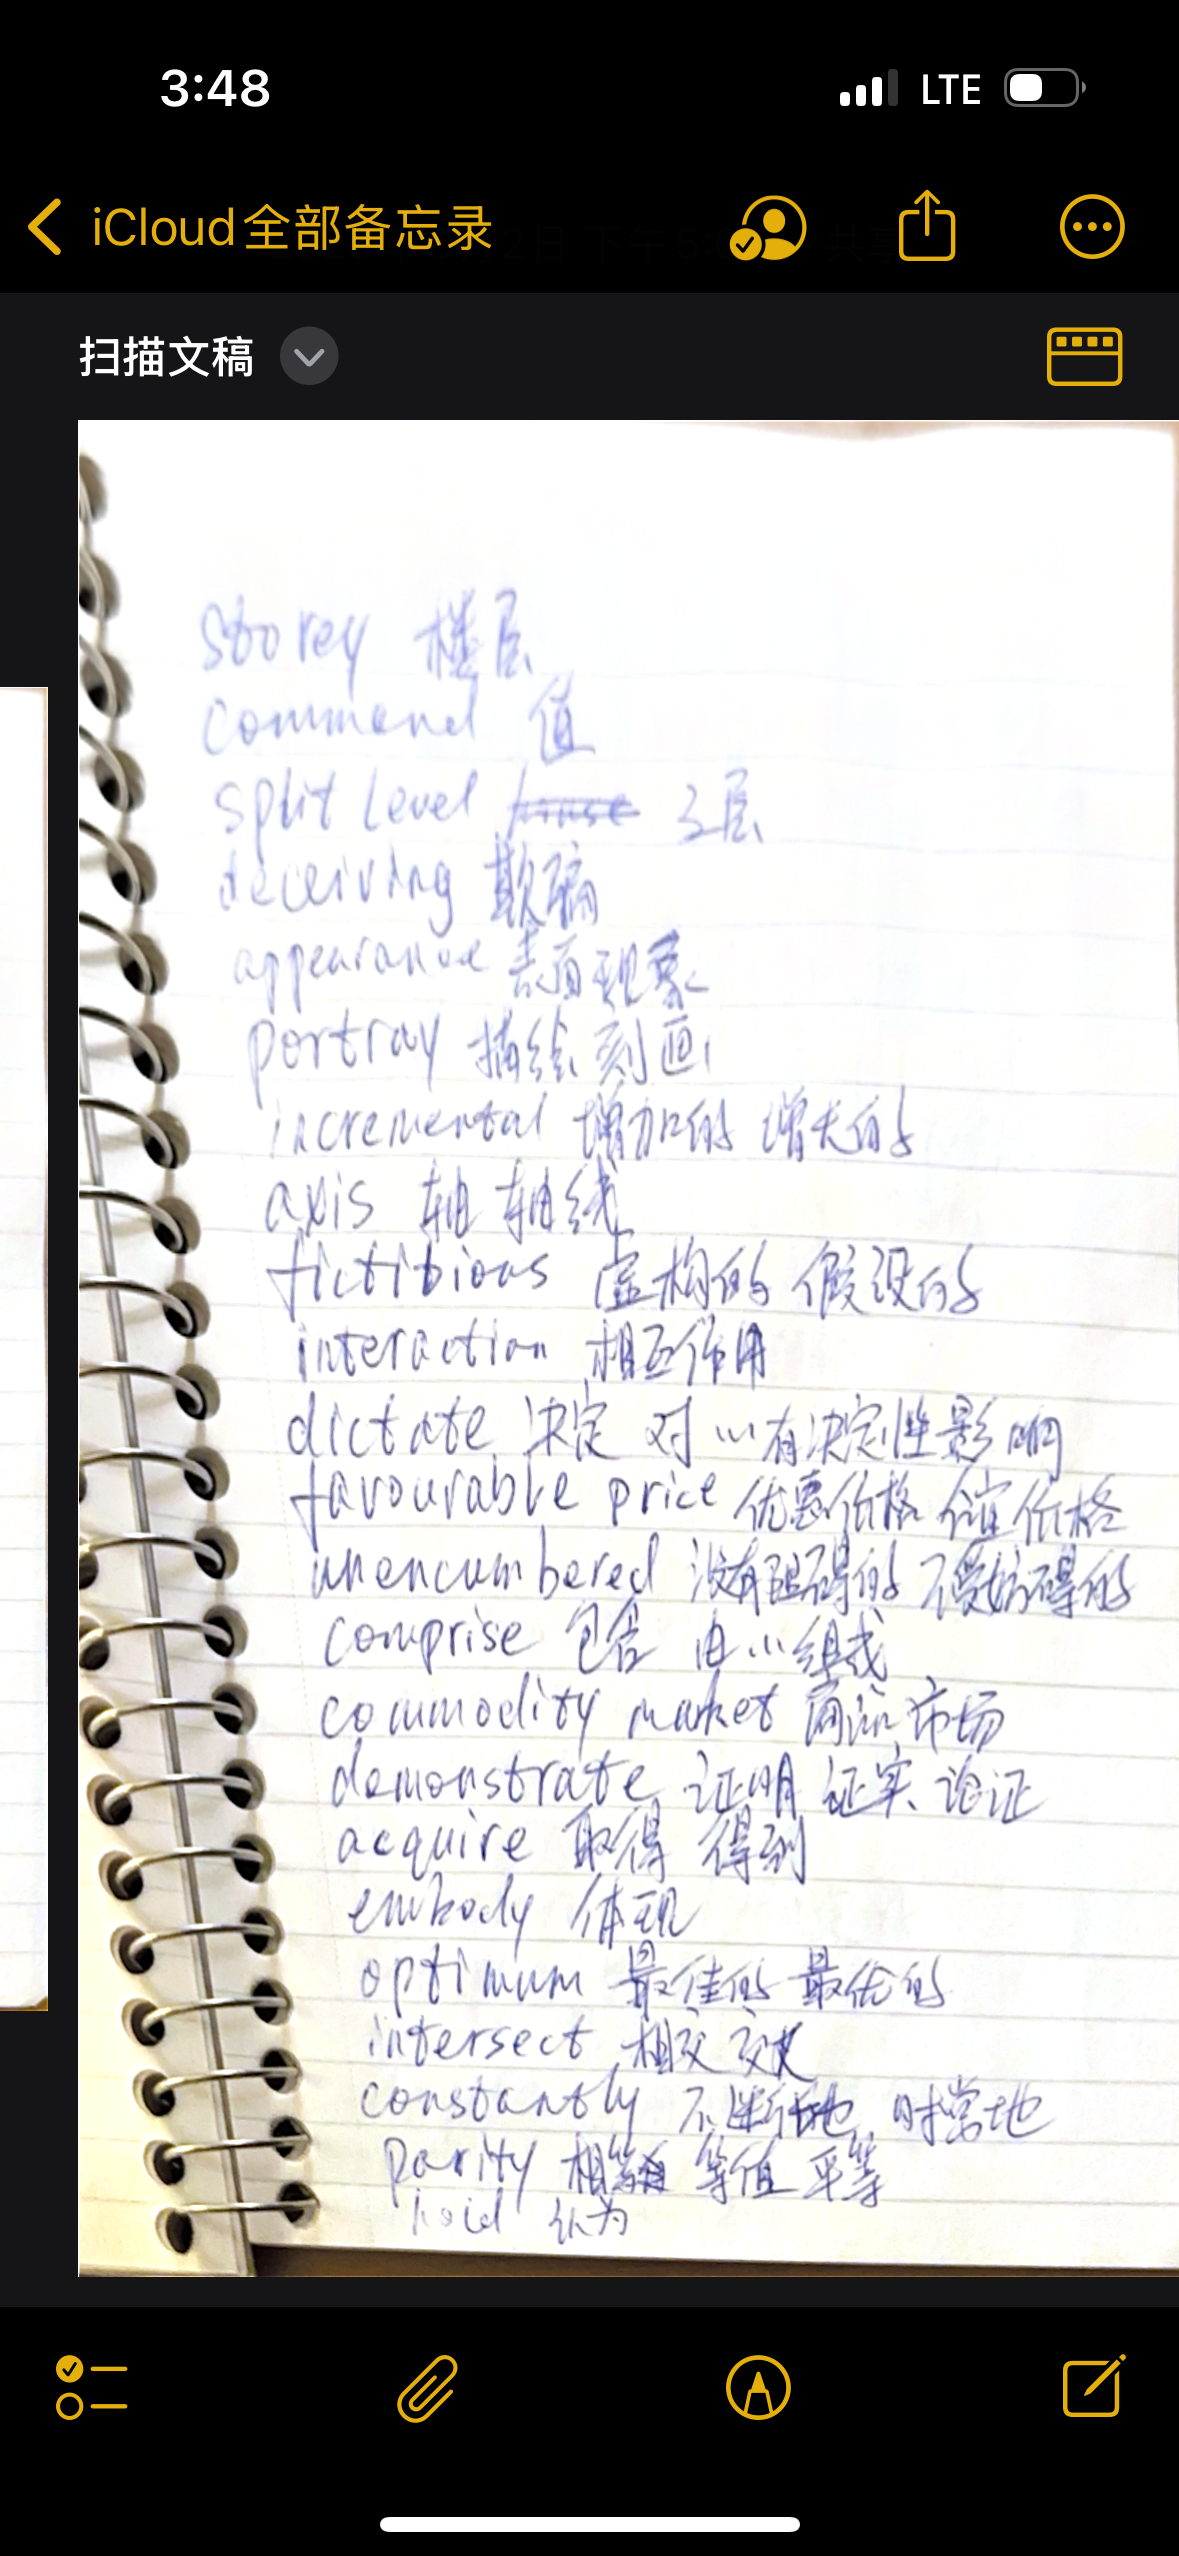 3:48 LTE
iCloud全部备忘录
扫描文稿
storey 楼层
command 值
split level 3层
deceiving 欺骗
appearance 表面现象
portray 描绘 刻画
incremental 增加的 增大的
axis 轴 轴线
fictitious 虚构的 假设的
interaction 相互作用
dictate 决定 对…有决定性影响
favourable price 优惠价格 价格
unencumbered 没有阻碍的 不受妨碍的
comprise 包含 由…组成
commodity market 商品市场
demonstrate 证明 证实 论证
acquire 取得 得到
embody 体现
optimum 最佳的 最优的
intersect 相交 交叉
constantly 不断地 时常地
parity 相等 等值 平等
hold 认为